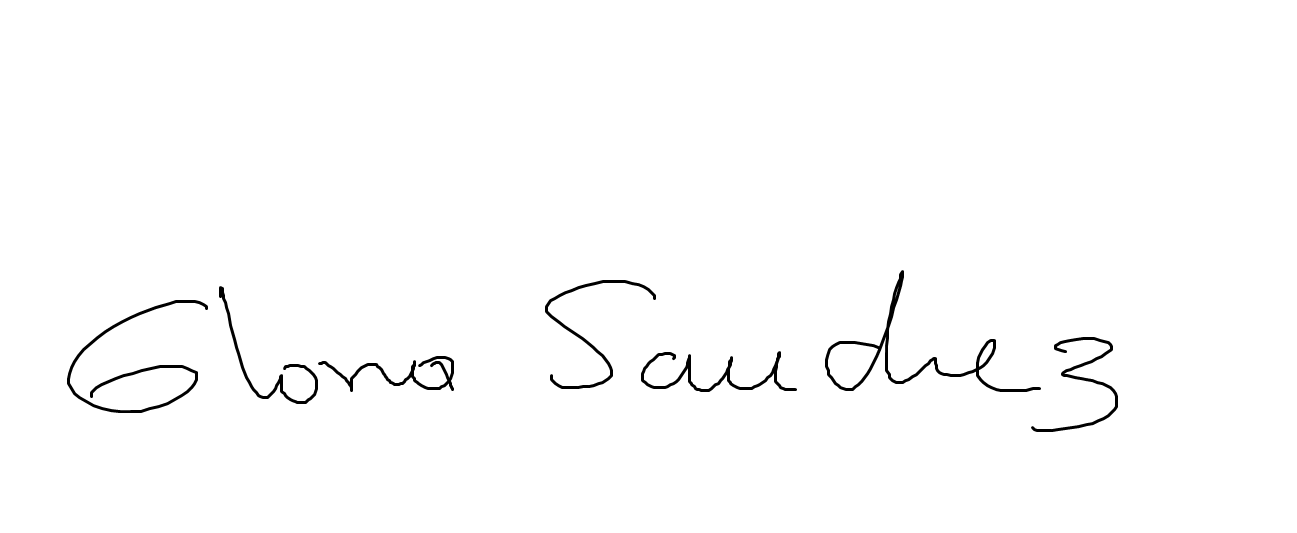 Gloria Sanchez